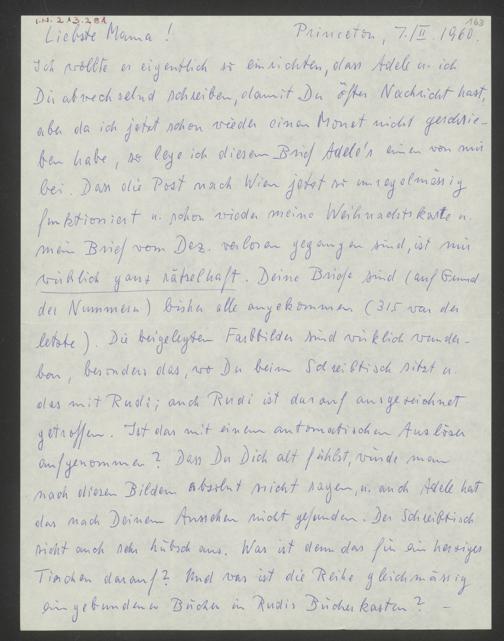 I.N. 213.281
163
Liebste Mama!
Princeton, 7./II. 1960.
Ich wollte es eigentlich so einrichten, dass Adele u. ich
Dir abwechselnd schreiben, damit Du öfter Nachricht hast,
aber da ich jetzt schon wieder einen Monat nicht geschrie-
ben habe, so lege ich diesem Brief Adele's einen von mir
bei. Dass die Post nach Wien jetzt so unregelmässig
funktioniert u. schon wieder meine Weihnachtskarte u.
mein Brief vom Dez. verloren gegangen sind, ist mir
wirklich ganz rätselhaft. Deine Briefe sind (auf Grund
der Nummern) bisher alle angekommen (315 war der
letzte). Die beigelegten Farbbilder sind wirklich wunder-
bar, besonders das, wo Du beim Schreibtisch sitzt u.
das mit Rudi; auch Rudi ist darauf ausgezeichnet
getroffen. Ist das mit einem automatischen Auslöser
aufgenommen? Dass Du Dich alt fühlst, würde man
nach diesen Bildern absolut nicht sagen, u. auch Adele hat
das nach Deinem Aussehen nicht gefunden. Der Schreibtisch
sieht auch sehr hübsch aus. Was ist denn das für ein herziges
Tierchen darauf? Und was ist die Reihe gleichmässig
eingebundener Bücher in Rudis Bücherkasten? –